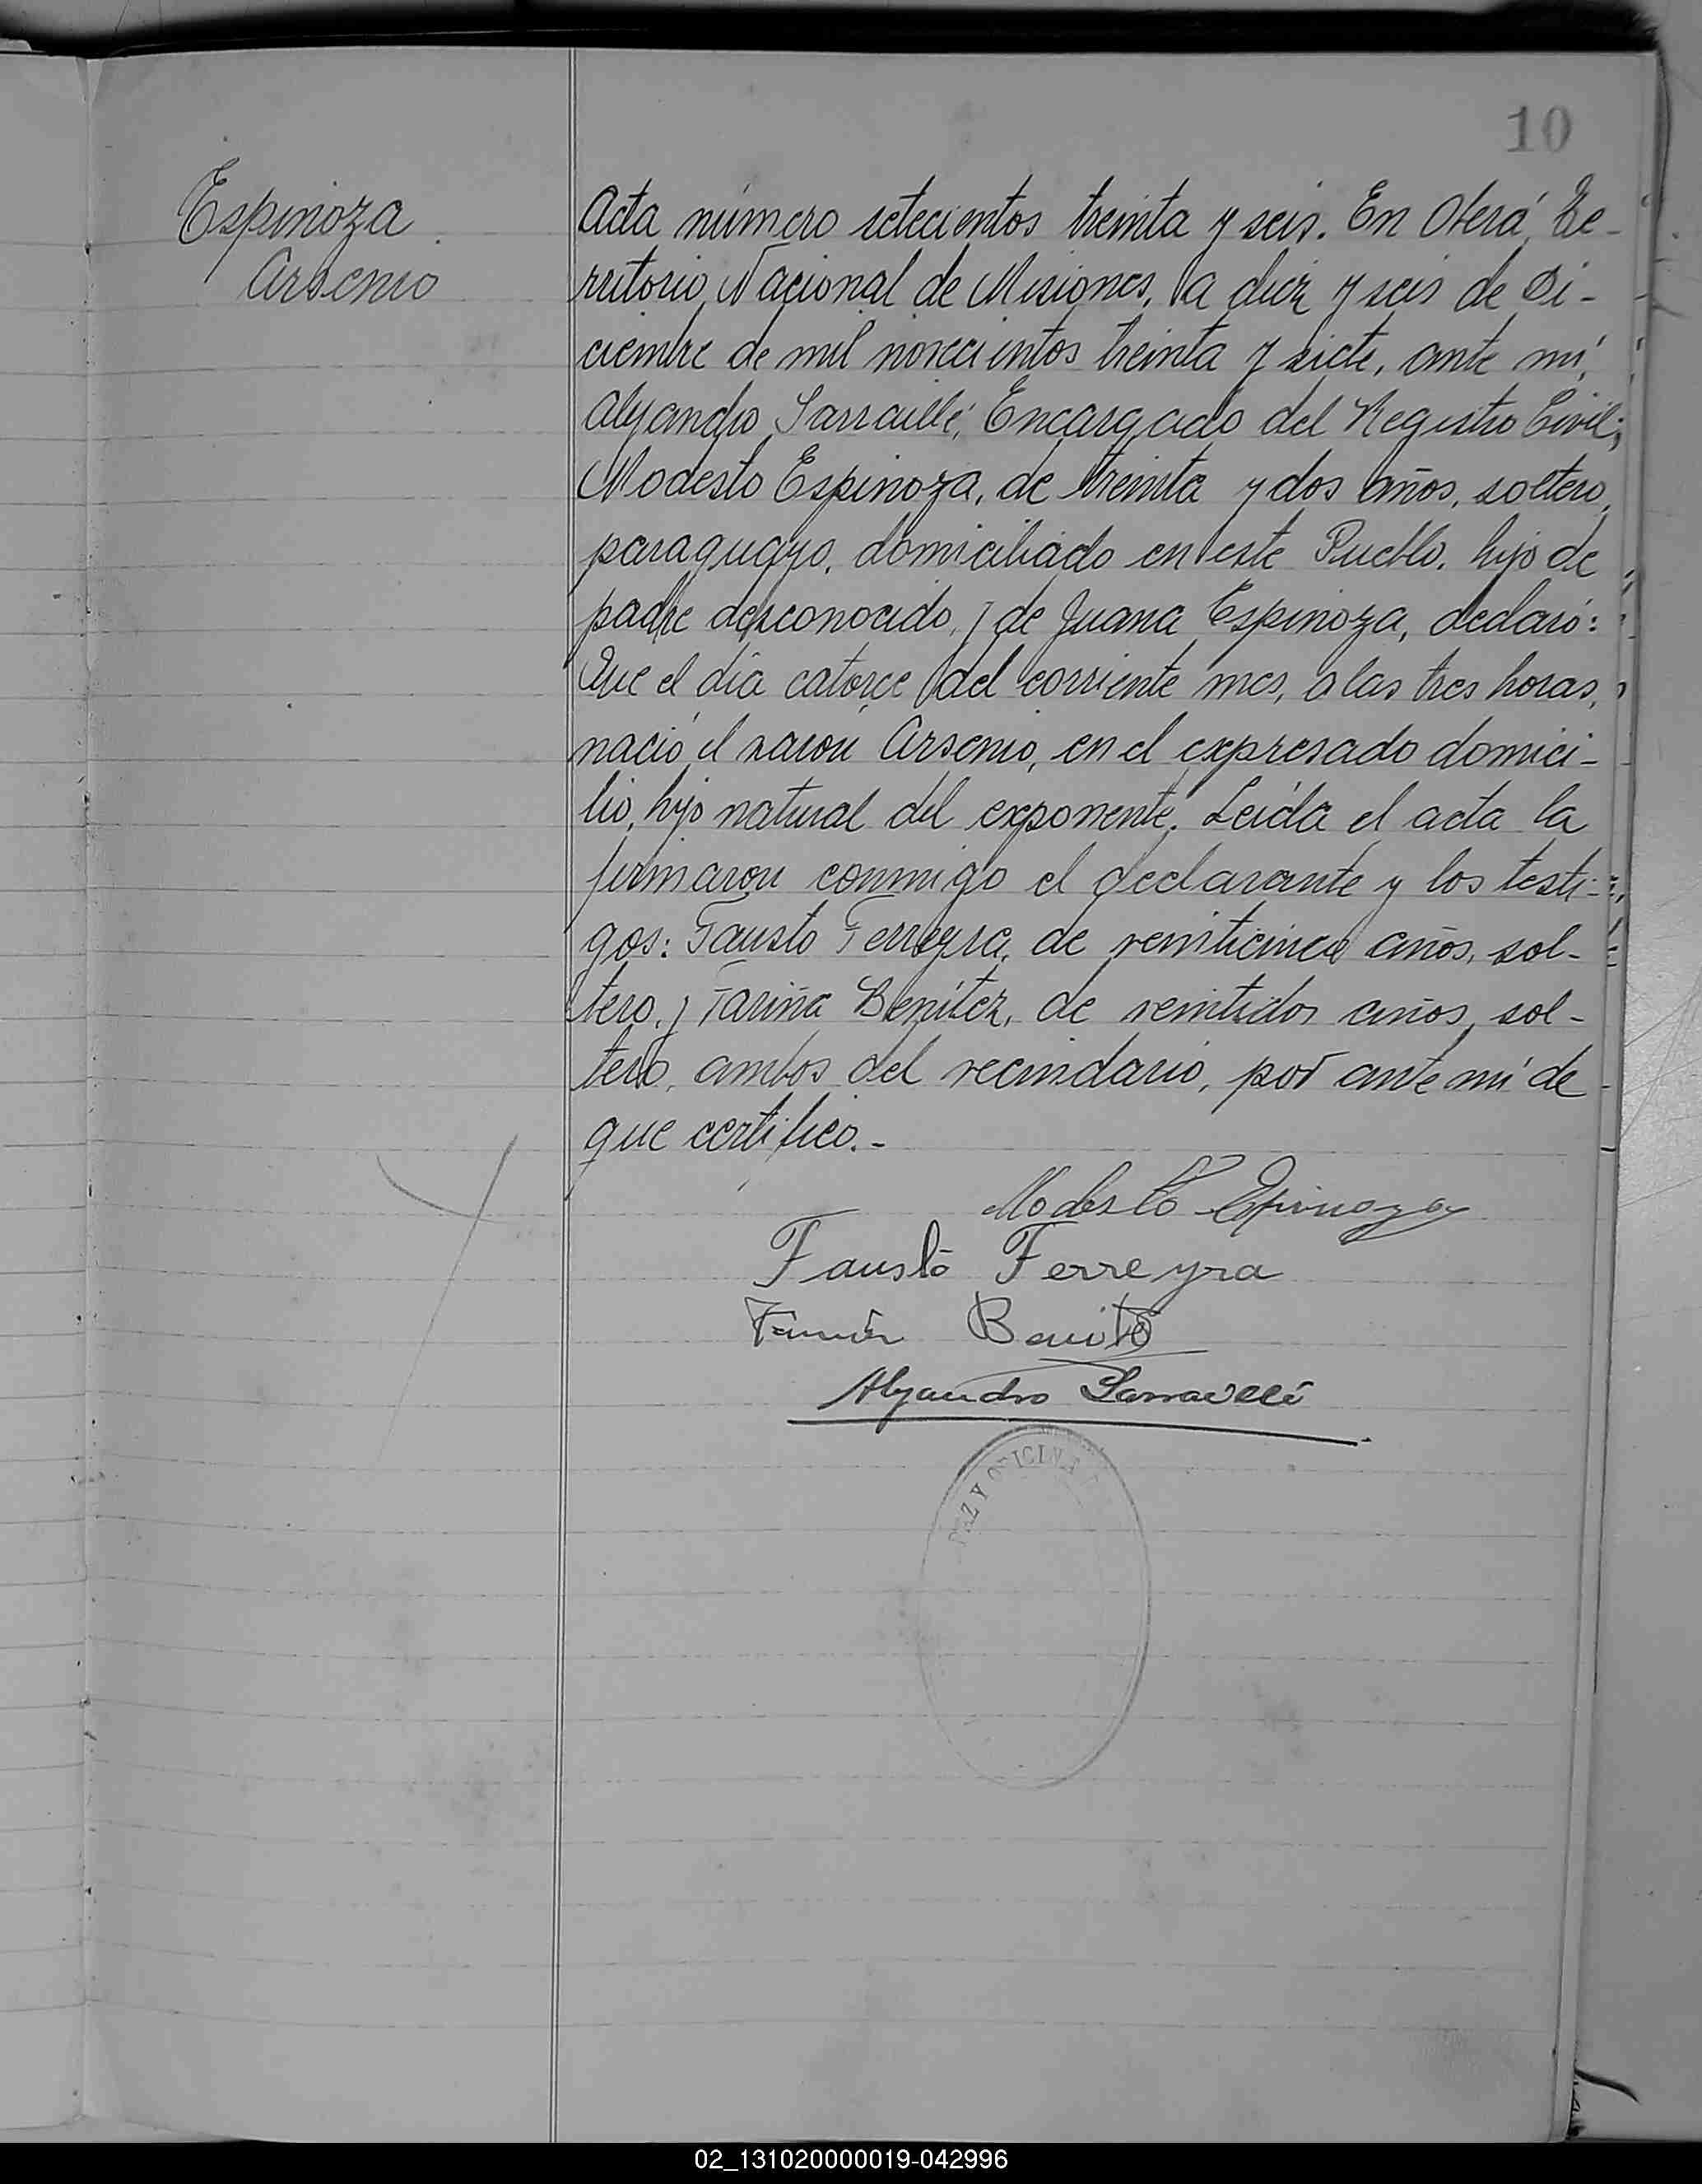 10
Espinoza
Arsenio
Acta número setecientos treinta y seis. En Oberá, Te-
rritorio Nacional de Misiones, a diez y seis de Di-
ciembre de mil novecientos treinta y siete, ante mí,
Alejandro Sarraillé, Encargado del Registro Civil;
Modesto Espinoza, de treinta y dos años, soltero,
paraguayo, domiciliado en este Pueblo, hijo de
padre desconocido y de Juana Espinoza, declaró:
Que el día catorce del corriente mes, a las tres horas,
nació el varon Arsenio, en el expresado domici-
lio, hijo natural del exponente. Leída el acta la
firmaron conmigo el declarante y los testi-
gos: Fausto Ferreyra, de veinticinco años, sol-
tero, y Fariña Benítez, de veintidos años, sol-
tero, ambos del vecindario, por ante mí de
que certifico.-
Modesto Espinoza
Fausto Ferreyra
Benite
Alejandro Sarraillé
PAZ Y OFICINA
02_131020000019-042996